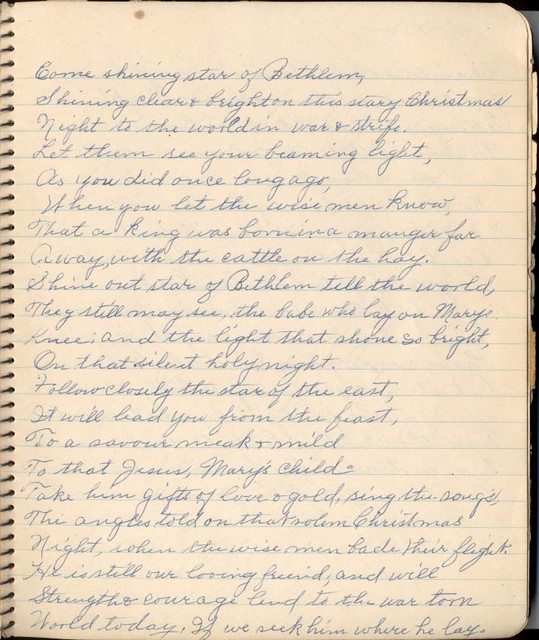 Come shining star of Bethlem,
Shining clear & bright on this stary Christmas
Night to the world in war & strife.
Let them see your beaming light,
As you did once long ago,
When you let the wise men know,
That a king was born in a manger far
Away, with the cattle on the hay.
Shine out star of Bethlem tell the world,
They still may see, the babe who lay on Marys
Knee; and the light that shone so bright,
On that silent holy night.
Follow closely the star of the east,
It will lead you from the feast,
To a savour meak & mild
To that Jesus, Mary's child-
Take him gifts of love & gold, sing the songs,
The angles told on that solem Christmas
Night, when the wise men bade their flight.
He is still our loving friend, and will
Strength & courage lend to the war torn
World today, If we seek him where he lay.